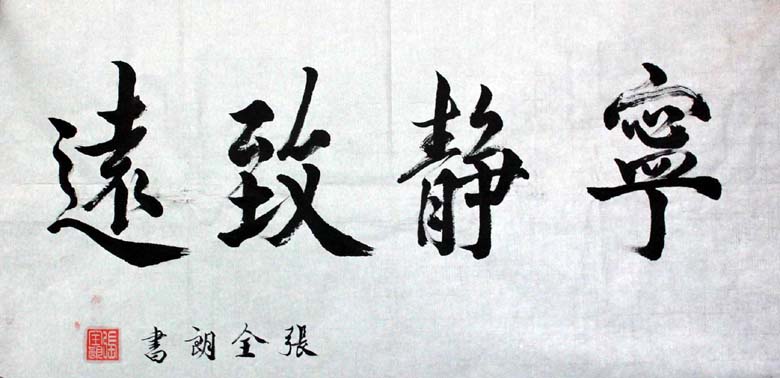 寧靜致遠
張全朗書